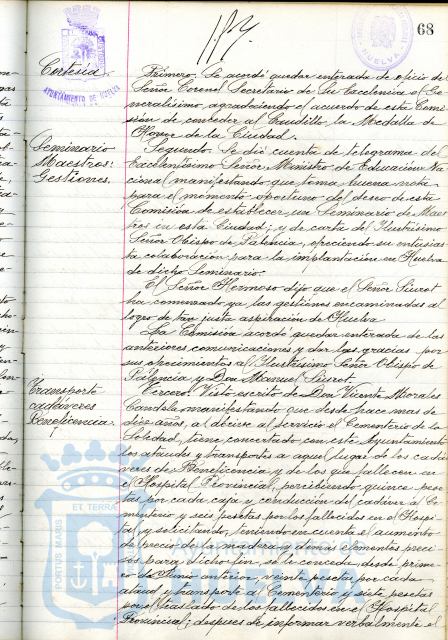 68
AYUNTAMIENTO DE HUELVA
HUELVA
Cortesía.
Primero. Se acordó quedar enterada de oficio del
Señor Coronel Secretario de Su Excelencia el Ge-
neralísimo, agradeciendo el acuerdo de esta Comi-
sión de conceder al Caudillo la Medalla de
Honor de la Ciudad.
Seminario
Maestros:
Gestiones.
Segundo. Se dió cuenta de telegrama del
Excelentísimo Señor Ministro de Educación Na-
cional manifestando que toma buena nota
para el momento oportuno del deseo de esta
Comisión de establecer un Seminario de Maes-
tros en esta Ciudad; y de carta del Ilustrísimo
Señor Obispo de Palencia, ofreciendo su entusias-
ta colaboración para la implantación en Huelva
de dicho Seminario.
El Señor Hermoso dijo que el Señor Siurot
ha comenzado ya las gestiones encaminadas al
logro de tan justa aspiración de Huelva.
La Comisión acordó quedar enterada de las
anteriores comunicaciones y dar las gracias por
sus ofrecimientos al Ilustrísimo Señor Obispo de
Palencia y Don Manuel Siurot.
Transporte
cadáveres
Beneficencia.
Tercero. Visto escrito de Don Vicente Morales
Candela manifestando que desde hace mas de
diez años, al abrirse al servicio el Cementerio de la
Soledad, tiene concertado con este Ayuntamiento
los ataúdes y transportes a aquel lugar de los cadá-
veres de Beneficencia y de los que fallecen en
el Hospital Provincial, percibiendo quince pese-
tas por cada caja y conducción del cadáver al Ce-
menterio y seis pesetas por los fallecidos en el Hospi-
tal, y solicitando, teniendo en cuenta el aumento
de precio de la madera y demas elementos preci-
sos para dicho fin, se le conceda, desde prime-
ro de Junio anterior, veinte pesetas por cada
ataud y transporte al Cementerio y siete pesetas
por el traslado de los fallecidos en el Hospital
Provincial; despues de informar verbalmente el
Ayuntamiento de
HUELVA
PORTUS MARIS ET TERRAE